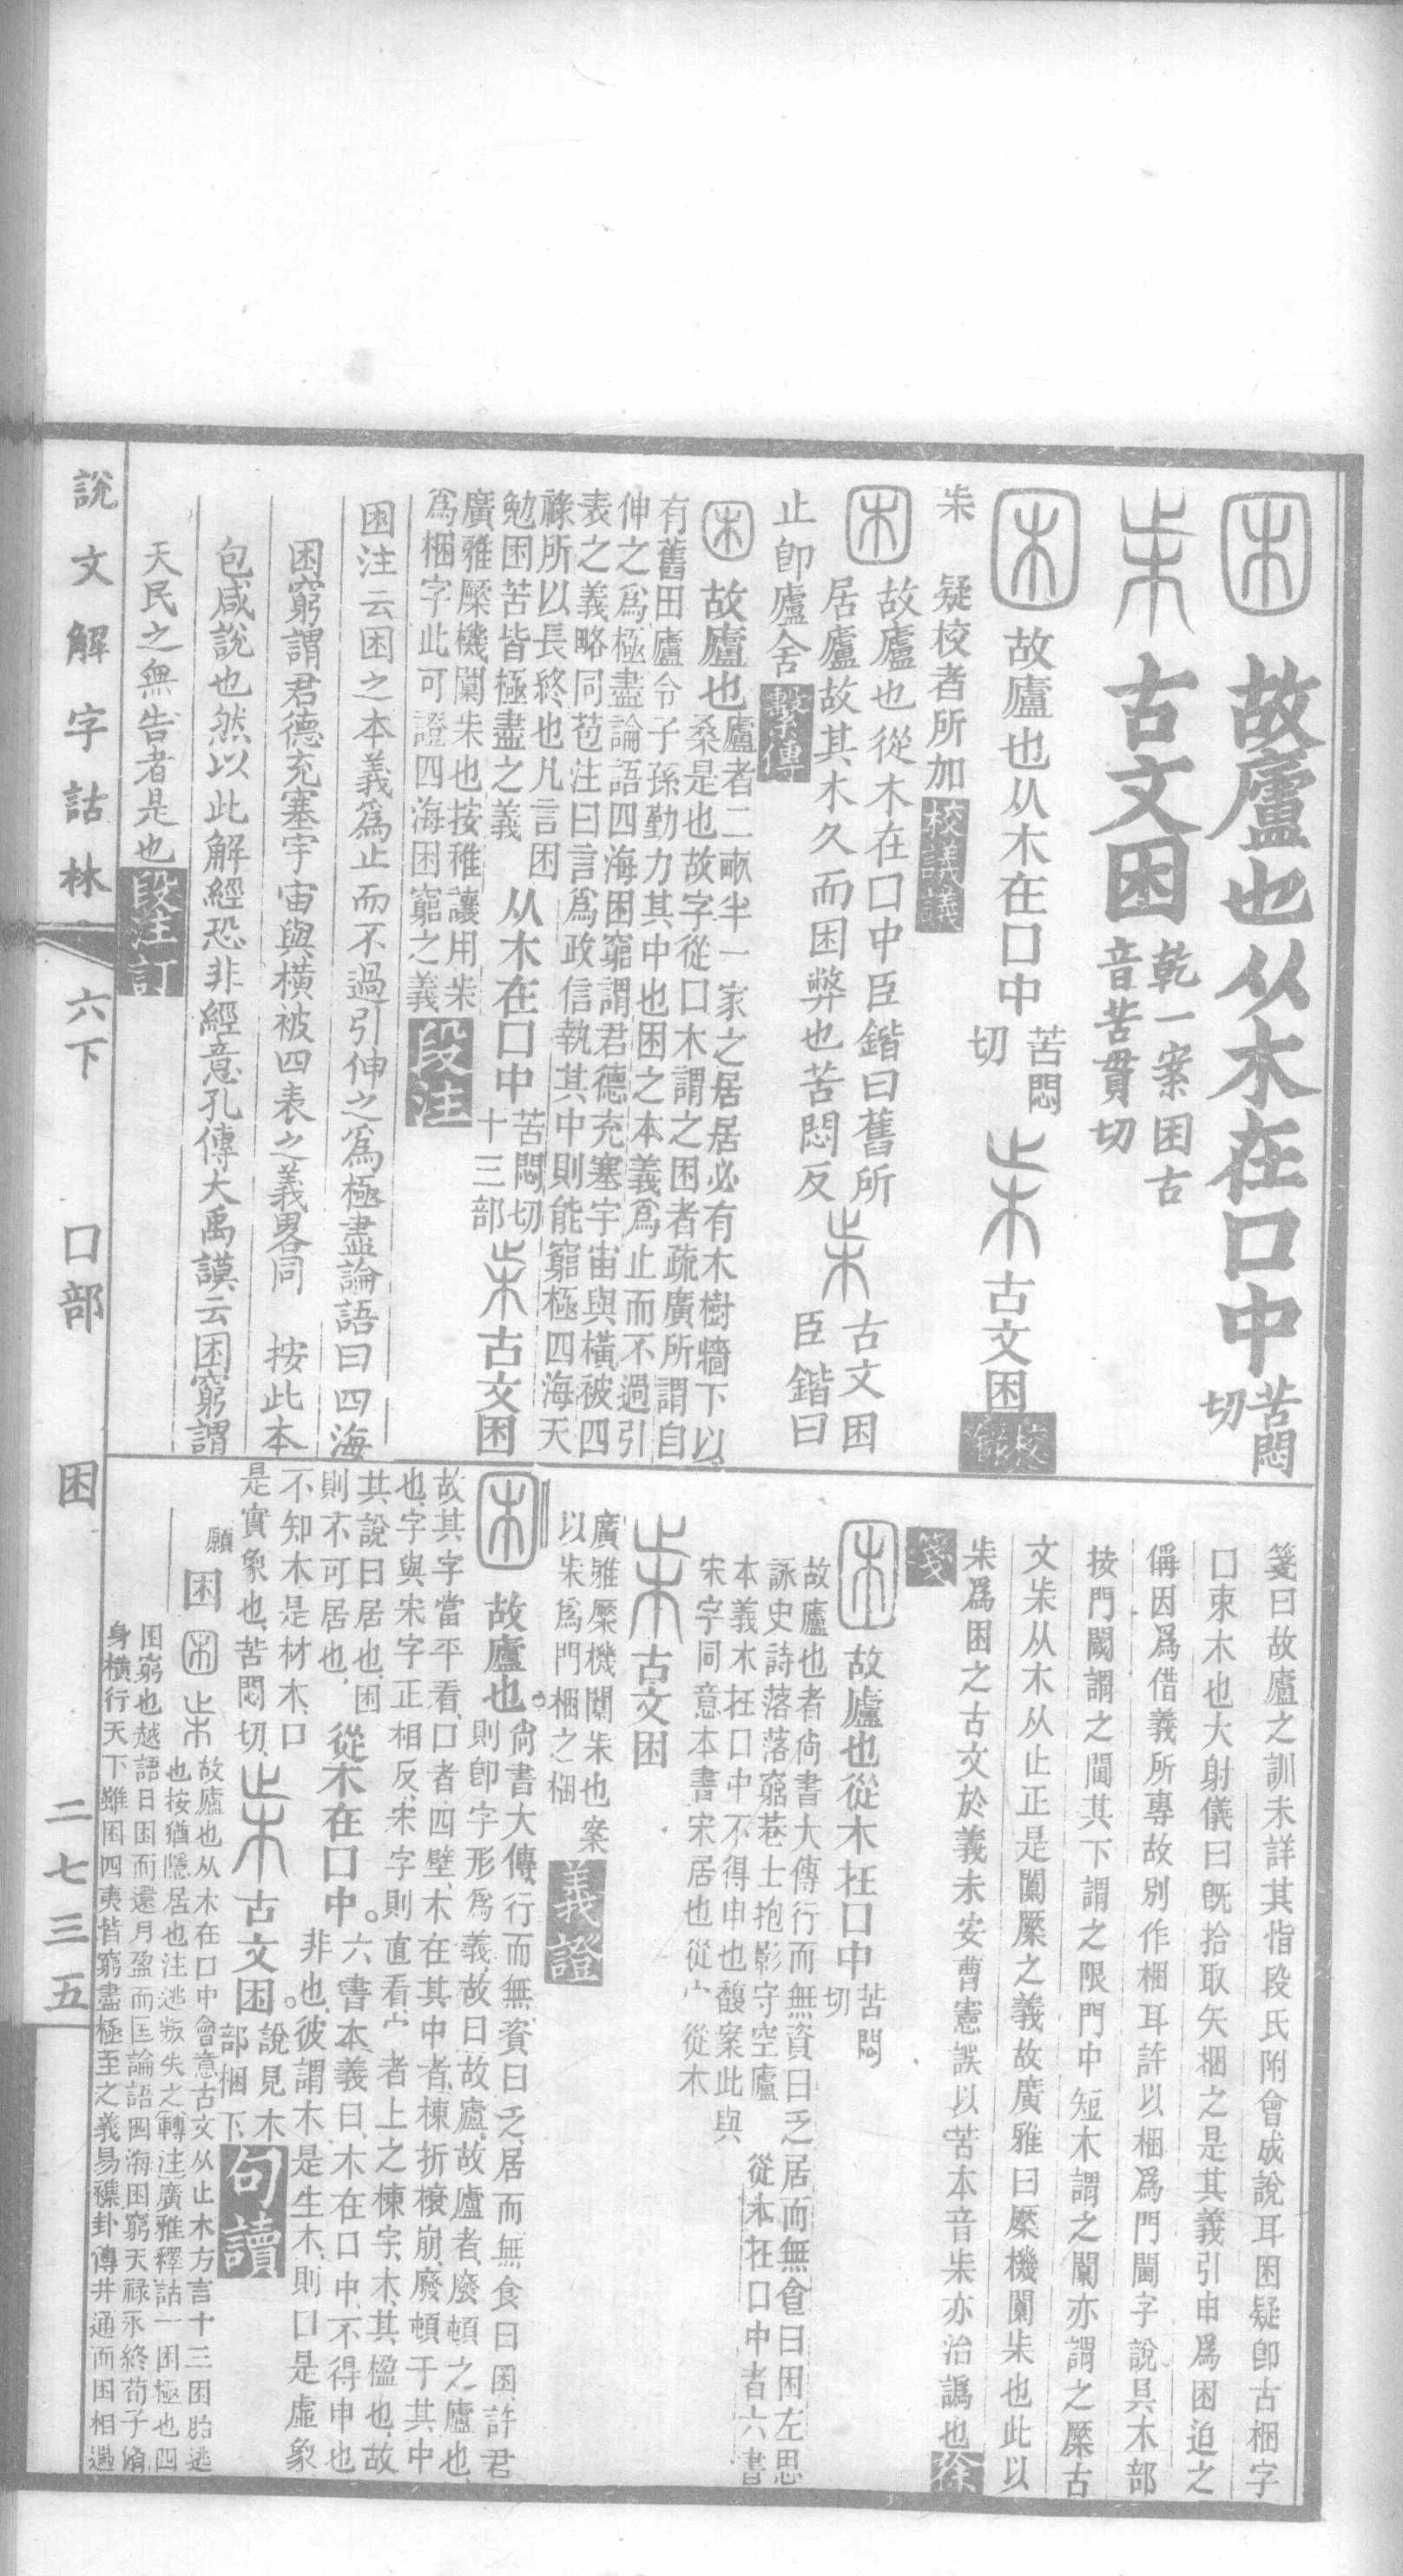 故廬也从木在囗中苦悶切
古文困乾一案困古音苦貫切
故廬也从木在囗中苦悶切 古文困校議
朱疑校者所加校議議
故廬也從木在囗中臣鍇曰舊所居廬故其木久而困弊也苦悶反 古文困臣鍇曰
止卽廬舍繫傳
故廬也廬者二畝半一家之居居必有木樹牆下以桑是也故字從囗木謂之困者疏廣所謂自
有舊田廬令子孫勤力其中也困之本義爲止而不過引
伸之爲極盡論語四海困窮謂君德充塞宇宙與橫被四
表之義略同苞注曰言爲政信執其中則能窮極四海天
祿所以長終也凡言困
勉困苦皆極盡之義从木在囗中苦悶切十三部 古文困
廣雅橜機闑朱也按稚讓用朱
爲梱字此可證四海困窮之義段注
困注云困之本義爲止而不過引伸之爲極盡論語曰四海
困窮謂君德充塞宇宙與橫被四表之義畧同 按此本
包咸說也然以此解經恐非經意孔傳大禹謨云困窮謂
天民之無告者是也段注訂
箋曰故廬之訓未詳其恉段氏附會成說耳困疑卽古梱字
囗束木也大射儀曰旣拾取矢梱之是其義引申爲困迫之
偁因爲借義所專故別作梱耳許以梱爲門閫字說具木部
按門閾謂之閫其下謂之限門中短木謂之闑亦謂之橜古
文朱从木从止正是闑橜之義故廣雅曰橜機闑朱也此以
朱爲困之古文於義未安曹憲誤以苦本音朱亦治譌也徐
箋
故廬也從木在囗中苦悶切
故廬也者尙書大傳行而無資曰乏居而無食曰困左思
詠史詩落落窮巷士抱影守空廬 從木在囗中者六書
本義木在囗中不得申也馥案此與
宋字同意本書宋居也從宀從木
古文困
廣雅橜機闑朱也案
以朱爲門梱之梱義證
故廬也尙書大傳行而無資曰乏居而無食曰困許君則卽字形爲義故曰故廬故廬者廢頓之廬也
故其字當平看囗者四壁木在其中者棟折榱崩廢頓于其中
也字與宋字正相反宋字則直看宀者上之棟宇木其楹也故
其說曰居也困則不可居也從木在囗中六書本義曰木在囗中不得申也非也彼謂木是生木則囗是虛象
不知木是材木囗
是實象也苦悶切 古文困說見木部梱下句讀
願 困 故廬也从木在囗中會意古文从止木方言十三困胎逃
也按猶隱居也注逃叛失之轉注廣雅釋詁一困極也四
困窮也越語日困而還月盈而匡論語四海困窮天祿永終荀子脩
身橫行天下雖困四夷皆窮盡極至之義易雜卦傳井通而困相遇
說文解字詁林 六下 囗部 困 二七三五